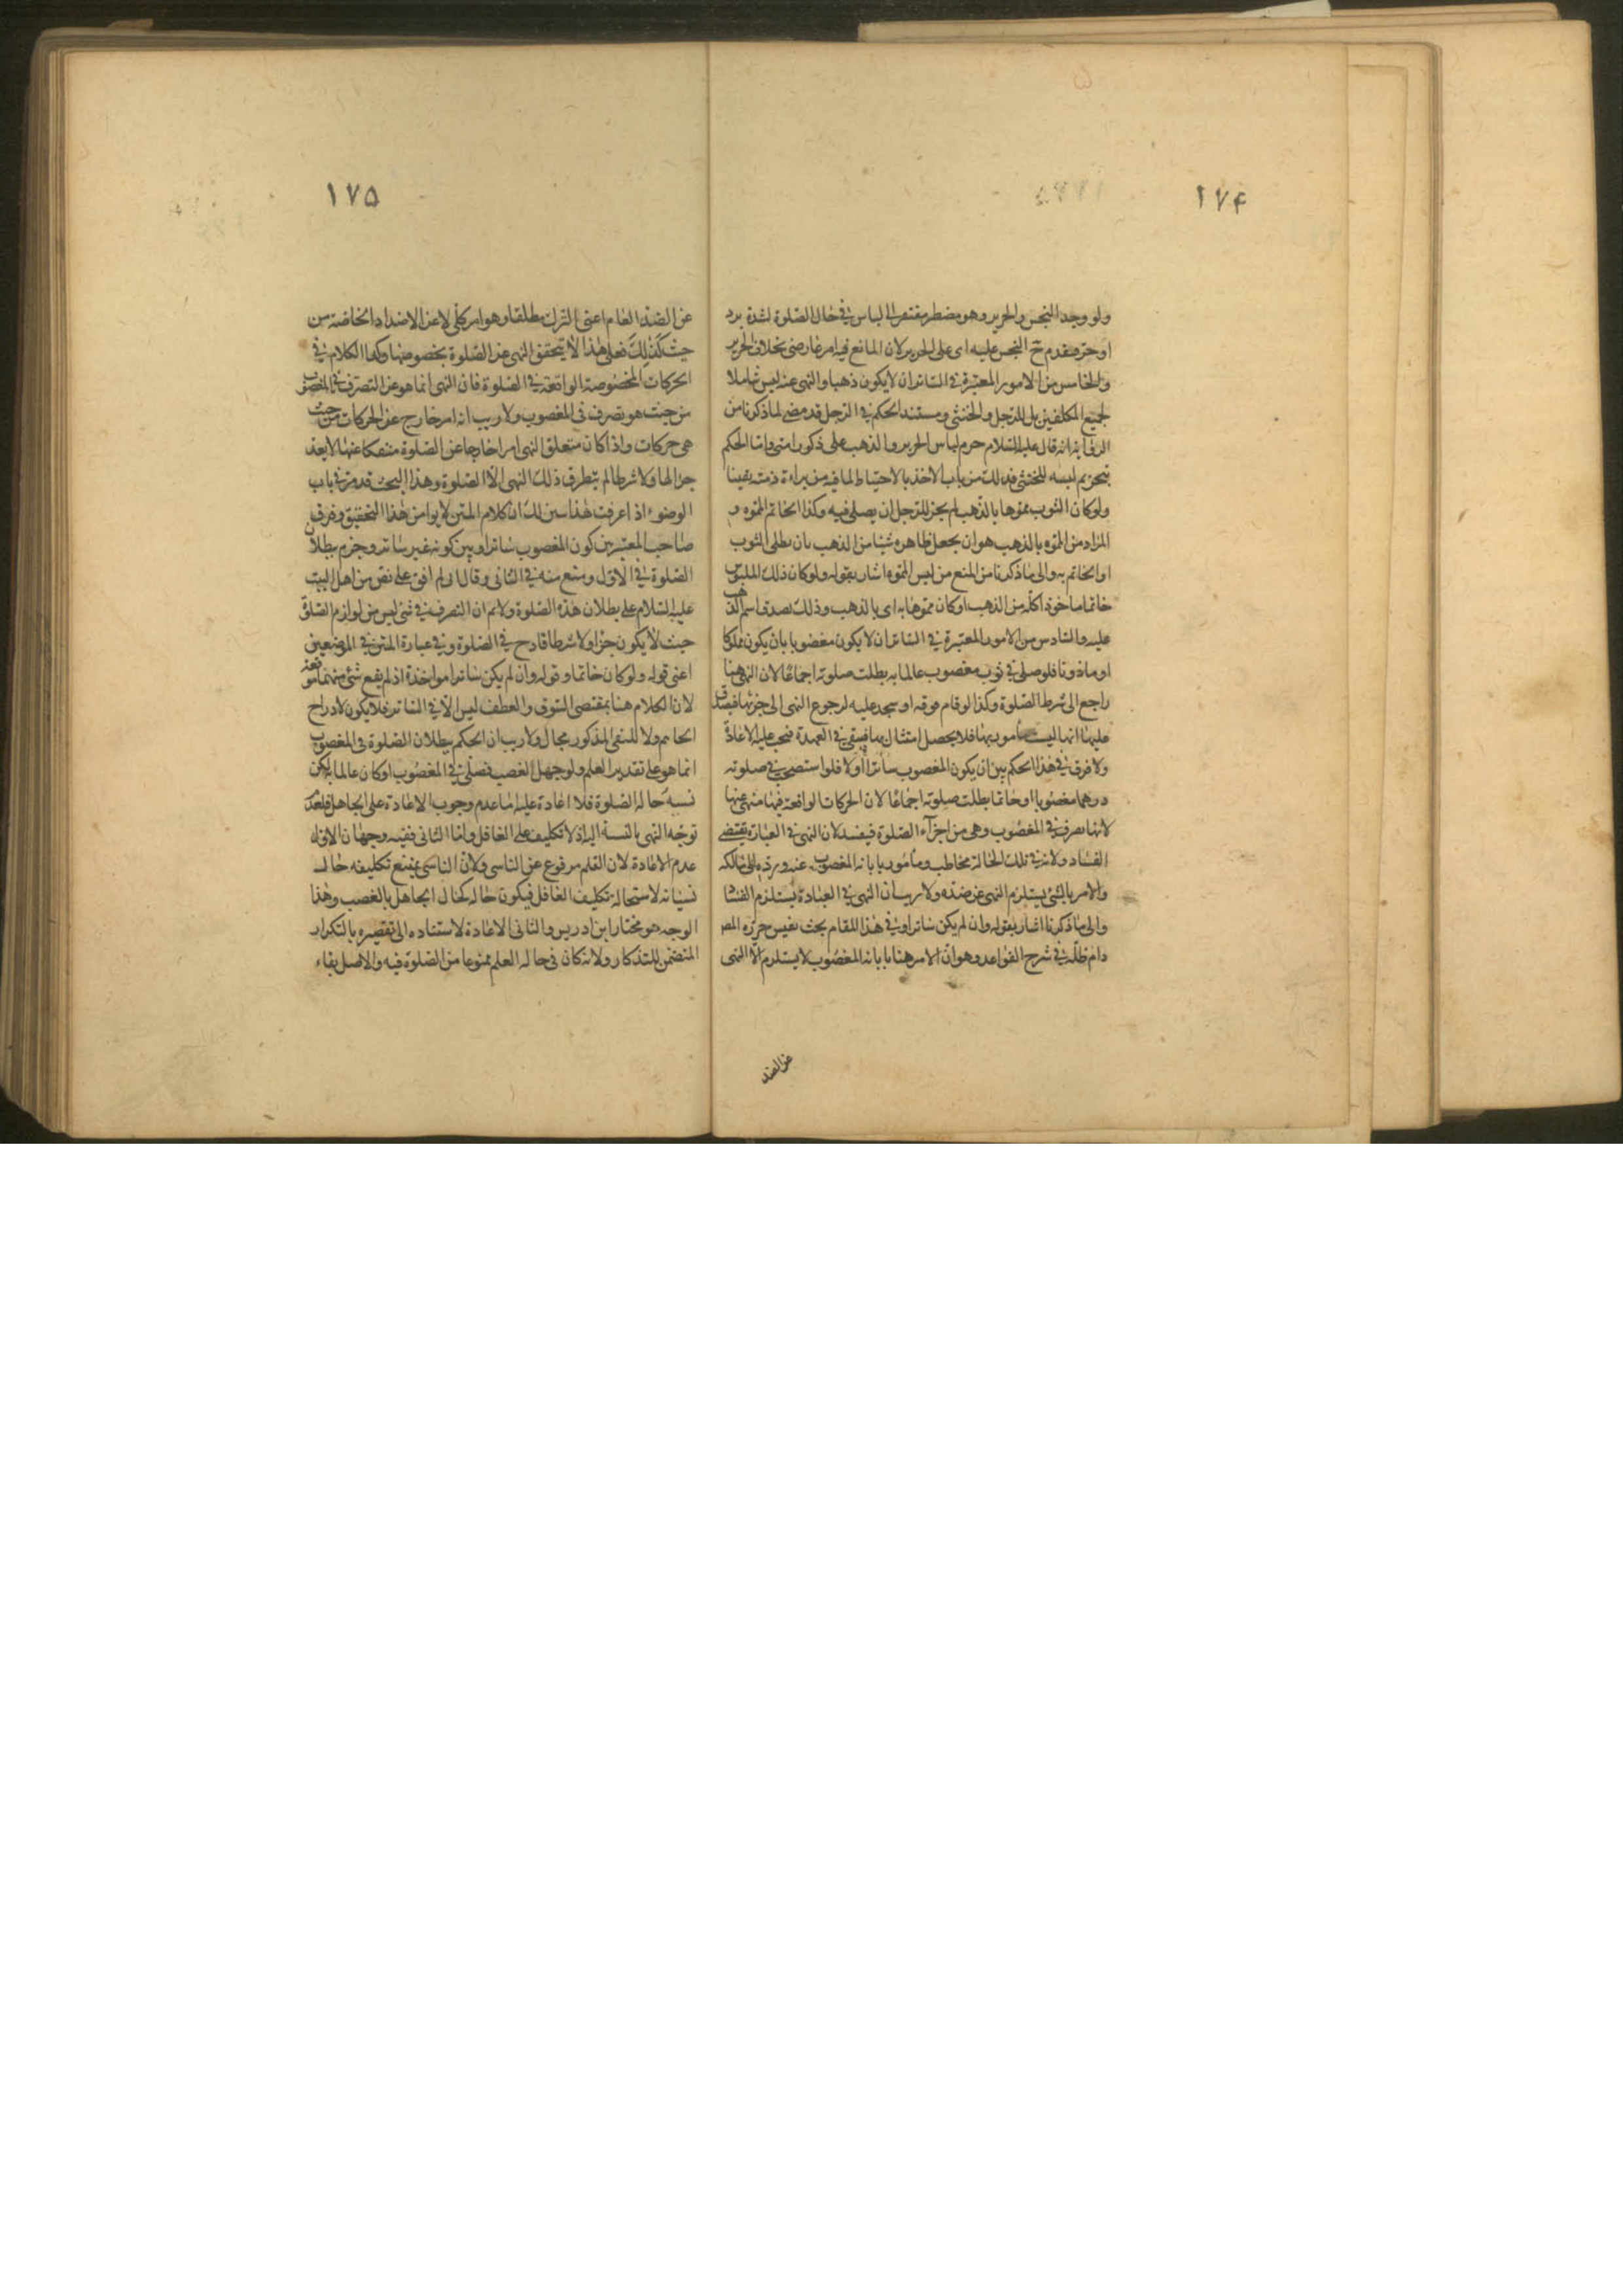 ١٧۴
ولو وجد النجس والحرير وهو مضطر مفتقر الى اللباس في حال الصلوة لشدة برد
او حر مقدم ح النجس عليه اى على الحرير لان المانع فيه امر عارضى بخلاف الحرير
والخامس من الامور المعتبرة في الساتر ان لا يكون ذهبا والنهى عنه ليس شاملا
لجميع المكلفين بل للرجل والخنثى ومستند الحكم في الرجل قد مضى لما ذكرنا من
الرواية انه قال عليه السلام حرم لباس الحرير والذهب على ذكور امتى واما الحكم
بتحريم لبسه للخنثى فذلك من باب الاخذ بالاحتياط لما فيه من براءة ذمته يقينا
ولو كان الثوب مموها بالذهب لم يجز للرجل ان يصلى فيه وكذا الخاتم المموه و
المراد من المموه بالذهب هو ان يجعل ظاهره شيئا من الذهب بان يطلى الثوب
او الخاتم به والى ما ذكرنا من المنع من لبس المموه اشار بقوله ولو كان ذلك الملبوس
خاتما ماخوذا كله من الذهب او كان مموها به اى بالذهب وذلك لصدق اسم الذهب
عليه والسادس من الامور المعتبرة في الساتر ان لا يكون مغصوبا بان يكون مملوكا
او ماذونا فلو صلى في ثوب مغصوب عالما به بطلت صلوته اجماعا لان النهى هنا
راجع الى شرط الصلوة وكذا لو قام فوقه او سجد عليه لرجوع النهى الى جزئها فيصدق
عليها انها ليست مأمور بها فلا يحصل امتثال بها فيبقى في العهدة فيجب عليه الاعادة
ولا فرق في هذا الحكم بين ان يكون المغصوب ساترا أو لا فلو استصحب في صلوته
درهما مغصوبا او خاتما بطلت صلوته اجماعا لان الحركات الواقعة فيها منهى عنها
لانها تصرف في المغصوب وهى من اجزآء الصلوة فيفسد لان النهى في العبادة يقتضى
الفساد ولانه في تلك الحالة مخاطب ومأمور بابانه المغصوب عنه ورده الى مالكه
والامر بالشئ يستلزم النهى عن ضده ولا ريب ان النهى في العبادة يستلزم الفساد
والى ما ذكرنا اشار بقوله وان لم يكن ساترا وفي هذا المقام بحث نفيس حرره المص
دام ظله في شرح القواعد وهو ان الامر هنا بابانه المغصوب لا يستلزم الا النهى
عن الضد
١٧۵
عن الضد العام اعنى الترك مطلقا وهو امر كلى لا عن الاضداد الخاصة من
حيث كذلك فعلى هذا لا يتحقق النهى عن الصلوة بخصوصها وكذا الكلام في
الحركات المخصوصة الواقعة في الصلوة فان النهى انما هو عن التصرف في المغصوب
من حيث هو تصرف فى المغصوب ولا ريب انه امر خارج عن الحركات من حيث
هى حركات واذا كان متعلق النهى امرا خارجا عن الصلوة منفكا عنها لا يعد
جزا لها ولا شرطا لم يتطرق ذلك النهى الى الصلوة وهذا البحث قد مر في باب
الوضوء اذا عرفت هذا سين لك ان كلام المتن لا يوا من هذا التحقيق وفرق
صاحب المعتبر بين كون المغصوب ساترا وبين كونه غير ساتر وجزم ببطلان
الصلوة في الاول ومنع منه في الثانى وقال انى لم اقف على نص من اهل البيت
عليه السلام على بطلان هذه الصلوة ولانم ان التصرف في شئ ليس من لوازم الصلوة
حيث لا يكون جزا ولا شرطا قادح في الصلوة وفي عبارة المتن في الموضعين
اعنى قوله ولو كان خاتما وقوله وان لم يكن ساترا مواخذة اذ لم يقع شئ منهما موقعه
لان الكلام هنا بمقتضى السوق والعطف ليس الا في الساتر فلا يكون لادراج
الخاتم ولا للنفى المذكور مجال ولا ريب ان الحكم ببطلان الصلوة فى المغصوب
انما هو على تقدير العلم ولو جهل الغصب فصلى في المغصوب او كان عالما لكن
نسيه حالة الصلوة فلا اعادة عليه اما عدم وجوب الاعادة على الجاهل فلعدم
توجه النهى بالنسبة اليه اذ لا تكليف على الغافل واما الثانى ففيه وجهان الاول
عدم الاعادة لان القلم مرفوع عن الناسى ولان الناسى يمتنع تكليفه حال
نسيانه لاستحالة تكليف الغافل فيكون حاله كحال الجاهل بالغصب وهذا
الوجه هو مختار ابن ادريس والثانى الاعادة لاستناده الى تقصيره بالتكرار
المتضمن للتذكار ولانه كان فى حالة العلم ممنوعا من الصلوة فيه والاصل بقاء